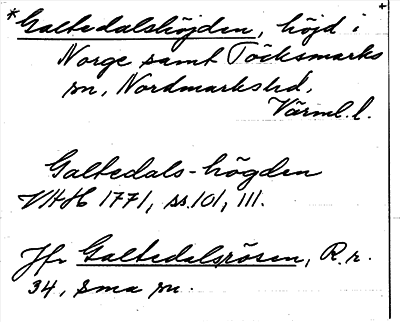 *Galtedalshöjden, höjd i
Norge samt Töcksmarks
sn, Nordmarks hd,
Värml. l.
Galtedals-högden
VHH 1771, ss. 101, 111.
Jfr Galtedalsrösen, R.r.
34, sma sn.